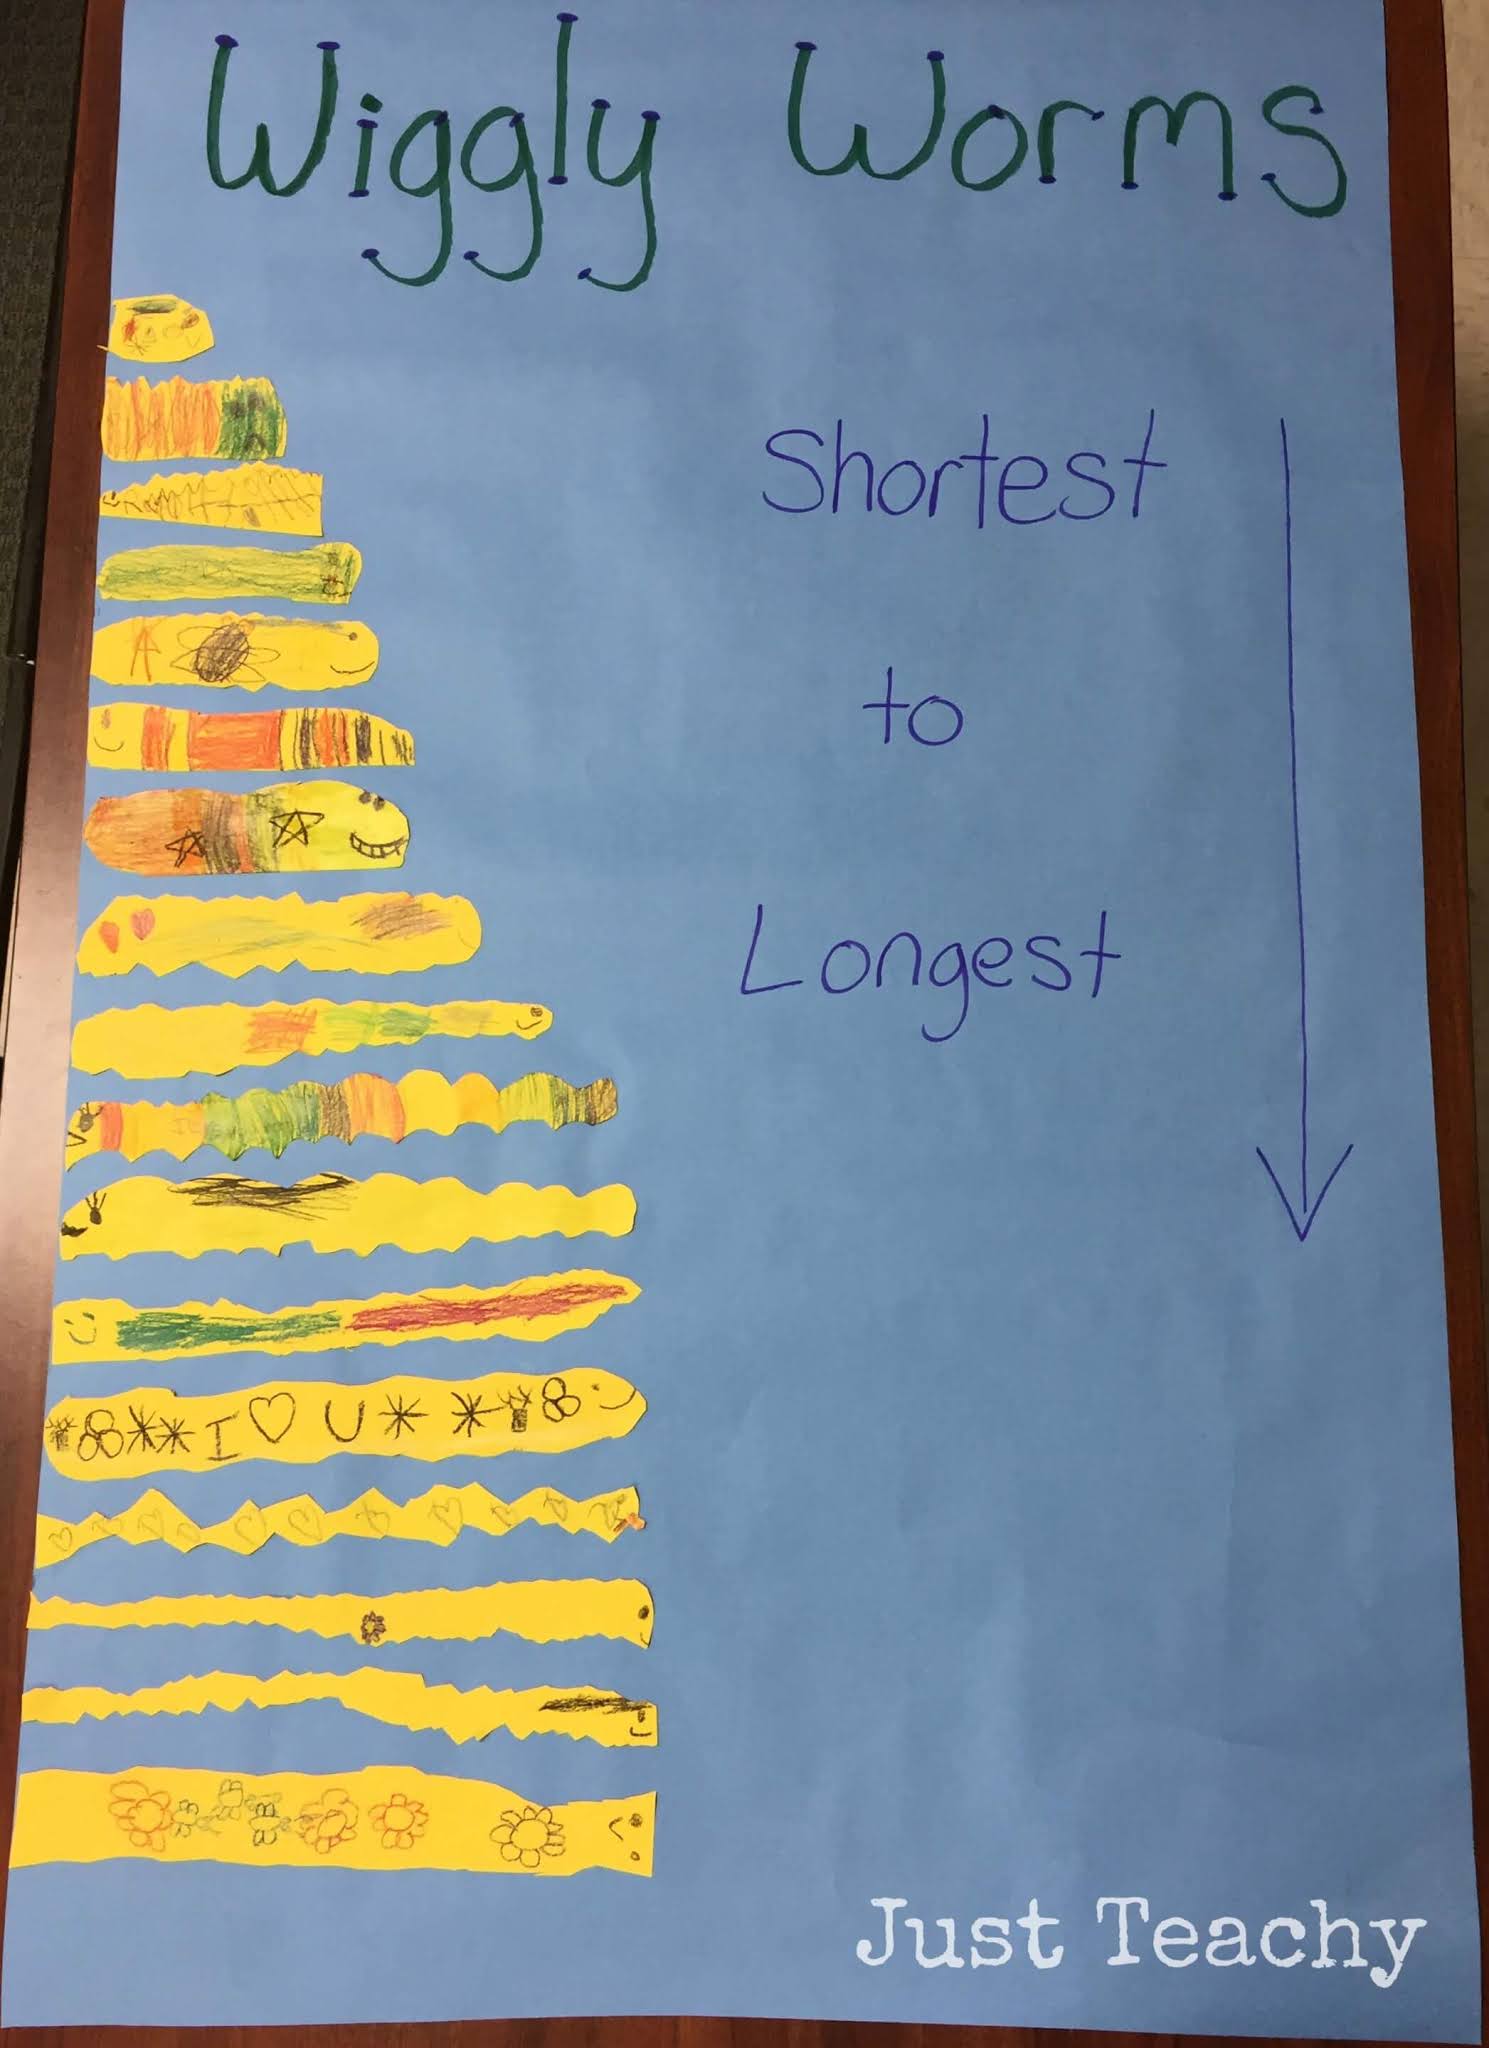 Wiggly Worms
Shortest
to
Longest
A
I ♡ U
Just Teachy